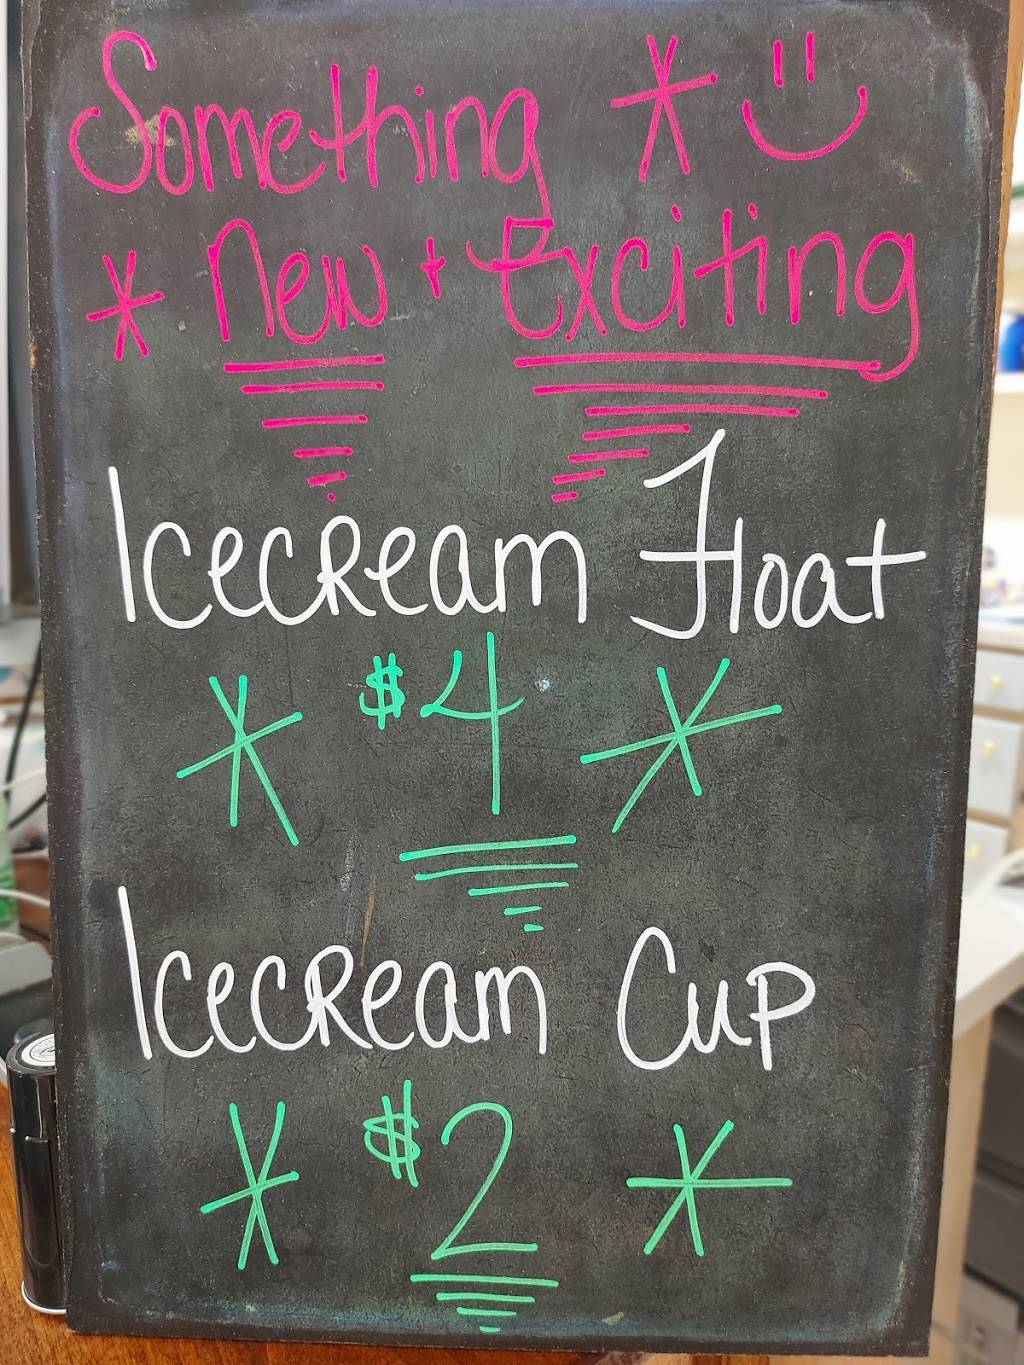 Something * :)
* New + Exciting
Icecream Float
* $4 *
Icecream Cup
* $2 *